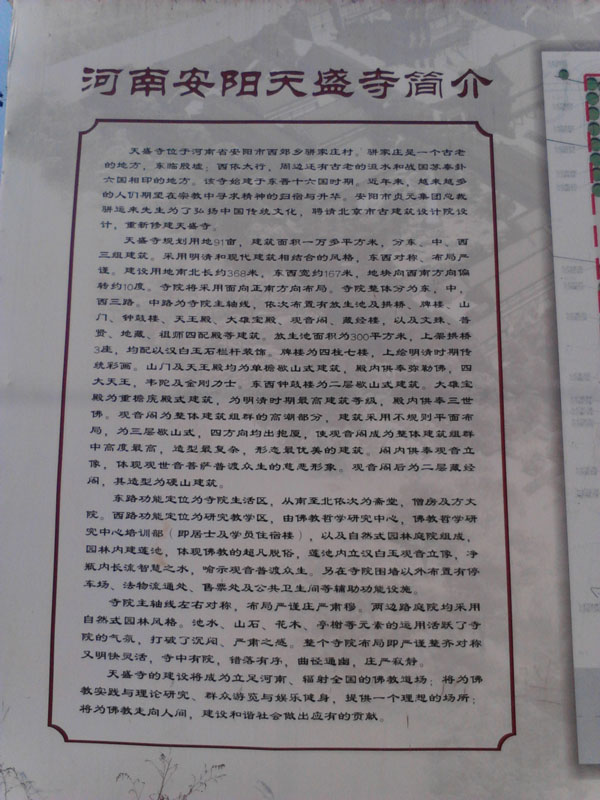 河南安阳天盛寺简介
天盛寺位于河南省安阳市西郊乡骈家庄村。骈家庄是一个古老
的地方，东临殷墟；西依太行，周边还有古老的洹水和战国苏秦卦
六国相印的地方。该寺始建于东晋十六国时期。近年来，越来越多
的人们期望在宗教中寻求精神的归宿与升华。安阳市贞元集团总裁
骈运来先生为了弘扬中国传统文化，聘请北京市古建筑设计院设
计，重新修建天盛寺。
天盛寺规划用地91亩，建筑面积一万多平方米，分东、中、西
三组建筑。采用明清和现代建筑相结合的风格，东西对称、布局严
谨。建设用地南北长约368米，东西宽约167米，地块向西南方向偏
转约10度。寺院将采用面向正南方向布局。寺院整体分为东，中，
西三路。中路为寺院主轴线，依次布置有放生池及拱桥、牌楼、山
门、钟鼓楼、天王殿、大雄宝殿、观音阁、藏经楼，以及文殊、普
贤、地藏、祖师四配殿等建筑。放生池面积为300平方米，上架拱桥
3座，均配以汉白玉石栏杆装饰。牌楼为四柱七楼，上绘明清时期传
统彩画。山门及天王殿均为单檐歇山式建筑，殿内供奉弥勒佛，四
大天王，韦陀及金刚力士。东西钟鼓楼为二层歇山式建筑。大雄宝
殿为重檐庑殿式建筑，为明清时期最高建筑等级，殿内供奉三世
佛。观音阁为整体建筑组群的高潮部分，建筑采用不规则平面布
局，为三层歇山式，四方向均出抱厦，使观音阁成为整体建筑组群
中高度最高，造型最复杂，形态最优美的建筑。阁内供奉观音立
像，体现观世音菩萨普渡众生的慈悲形象。观音阁后为二层藏经
阁，其造型为硬山建筑。
东路功能定位为寺院生活区，从南至北依次为斋堂，僧房及方丈
院。西路功能定位为研究教学区，由佛教哲学研究中心，佛教哲学研
究中心培训部（即居士及学员住宿楼），以及自然式园林庭院组成，
园林内建莲池，体现佛教的超凡脱俗，莲池内立汉白玉观音立像，净
瓶内长流智慧之水，喻示观音普渡众生。另在寺院围墙以外布置有停
车场、法物流通处、售票处及公共卫生间等辅助功能设施。
寺院主轴线左右对称，布局严谨庄严肃穆。两边路庭院均采用
自然式园林风格。池水、山石、花木、亭榭等元素的运用活跃了寺
院的气氛，打破了沉闷、严肃之感。整个寺院布局即严谨整齐对称
又明快灵活，寺中有院，错落有序，曲径通幽，庄严寂静。
天盛寺的建设将成为立足河南、辐射全国的佛教道场；将为佛
教实践与理论研究、群众游览与娱乐健身，提供一个理想的场所；
将为佛教走向人间，建设和谐社会做出应有的贡献。